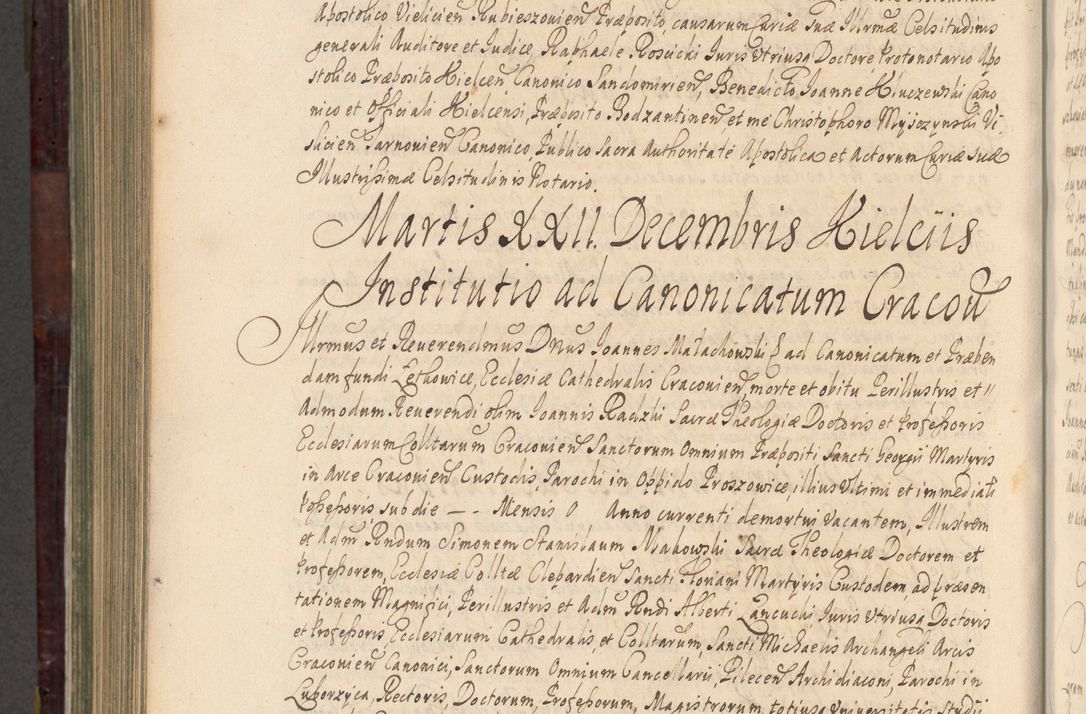 Apostolico Vielicien Rubieszovien Præposito, causarum Curiæ Suæ Illrmæ Celsitudinis
generali Auditore et Judice, Raphaele Roscichi Juris Utriusq Doctore, Protonotario Apo
stolico Præposito Kielcen Canonico Sandomirien, Benedicto Joanne Kluczewski Cano
nico et Officiali Kielcensi, Præposito Bodzantinen, et me Christophoro Myjszynski Vi,
slicien Tarnovien Canonico, Publico Sacra Authoritate Apostolica et Actorum Curiæ Suæ
Illustrissimæ Celsitudinis Notario.
Martis XXII. Decembris Kielcijs
Institutio ad Canonicatum Cracov
Illrmus et Reverendmus Dnus Joannes Małachowski P ad Canonicatum et Præben
dam fundi Łętkowice, Ecclesiæ Cathedralis Cracovien, morte et obitu Perillustris et //
Admodum Reverendi olim Joannis Radzki Sacræ Theologiæ Doctoris et Professoris
Ecclesiarum Colltarum Cracovien Sanctorum Omnium Præpositi Sancti Georgii Martyris
in Arce Cracovien Custodis, Parochi in Oppido Proszowice, illius Ultimi et immediati
Possessoris sub die — - Mensis 0 Anno currenti demortui vacantem, Illustrem
et Adm Rndum Simonem Stanislaum Makowski Sacræ Theologiæ Doctorem et
Professorem, Ecclesiæ Colltæ Clepardien Sancti Floriani Martyris Custodem, ad præsen
tationem Magnifici, Perillustris et Adm Rndi Alberti Łancuchi Juris Utriusq Doctoris
et Professoris, Ecclesiarum Cathedralis, et Colltarum, Sancti Michaelis Archangeli Arcis
Cracovien Canonici, Sanctorum Omnium Cancellarii, Pilecen Archidiaconi, Parochi in
Luborzyca, Rectoris, Doctorum, Professorum, Magistrorum, totiusq Universitatis Studii